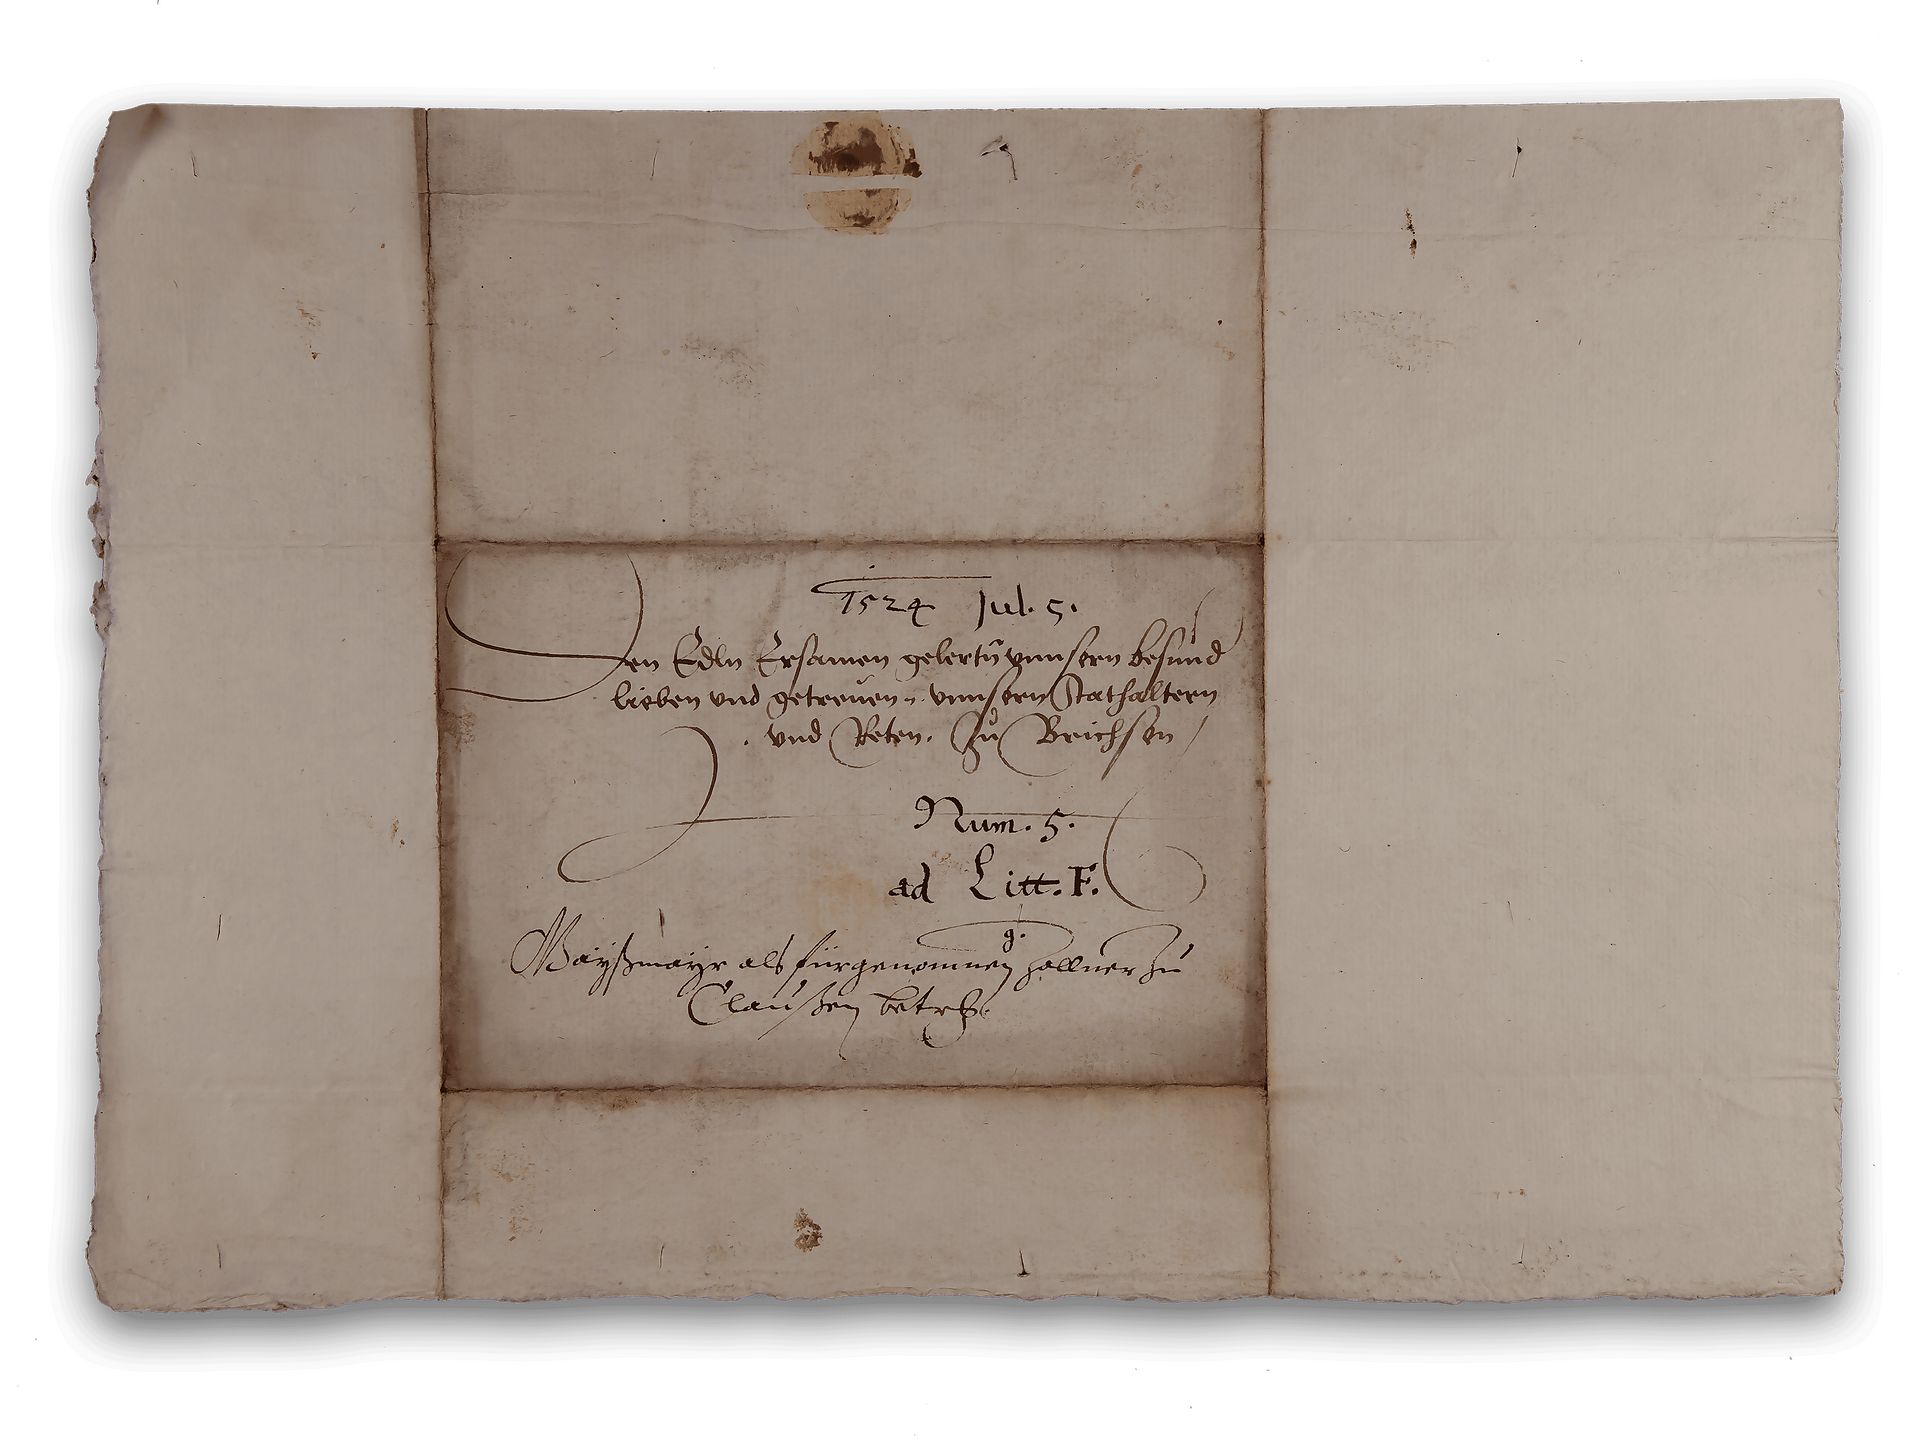 1524 Jul. 5.
Den Edln Ersamen gelertn̄ vnnsern besund
lieben vnd getreuen vnnsern Stathaltern
vnd Reten. Zu Brichsen
Num. 5.
ad Litt. F.
g.
Gayßmayr als fürgenomnen zollner zu
Claußen betrf.